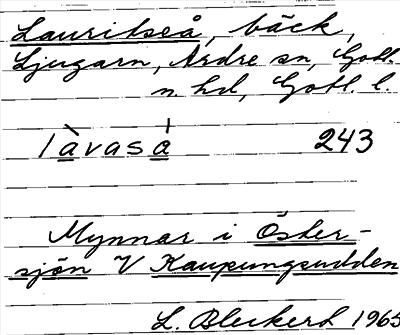 Lauritseå, bäck,
Ljugarn, Ardre sn, Gotl.
n. hd, Gotl. l.
làvasá 243
Mynnar i Öster-
sjön V Kaupungsudden
L. Bleckert 1965